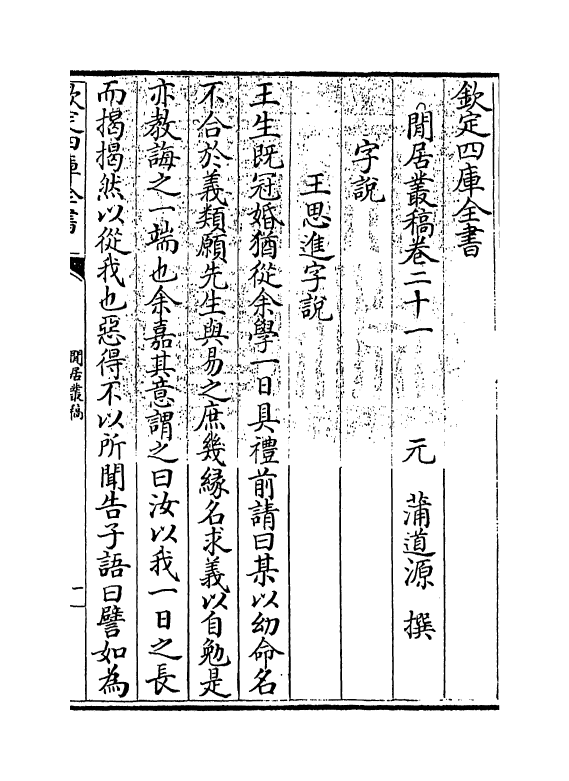 欽定四庫全書
閒居叢稿卷二十一　元　蒲道源　撰
字說
王思進字說
王生既冠婚猶從余學一日具禮前請曰某以幼命名
不合於義類願先生與易之庶幾緣名求義以自勉是
亦教誨之一端也余嘉其意謂之曰汝以我一日之長
而揭揭然以從我也惡得不以所聞告子語曰譬如為
欽定四庫全書
閒居叢稿